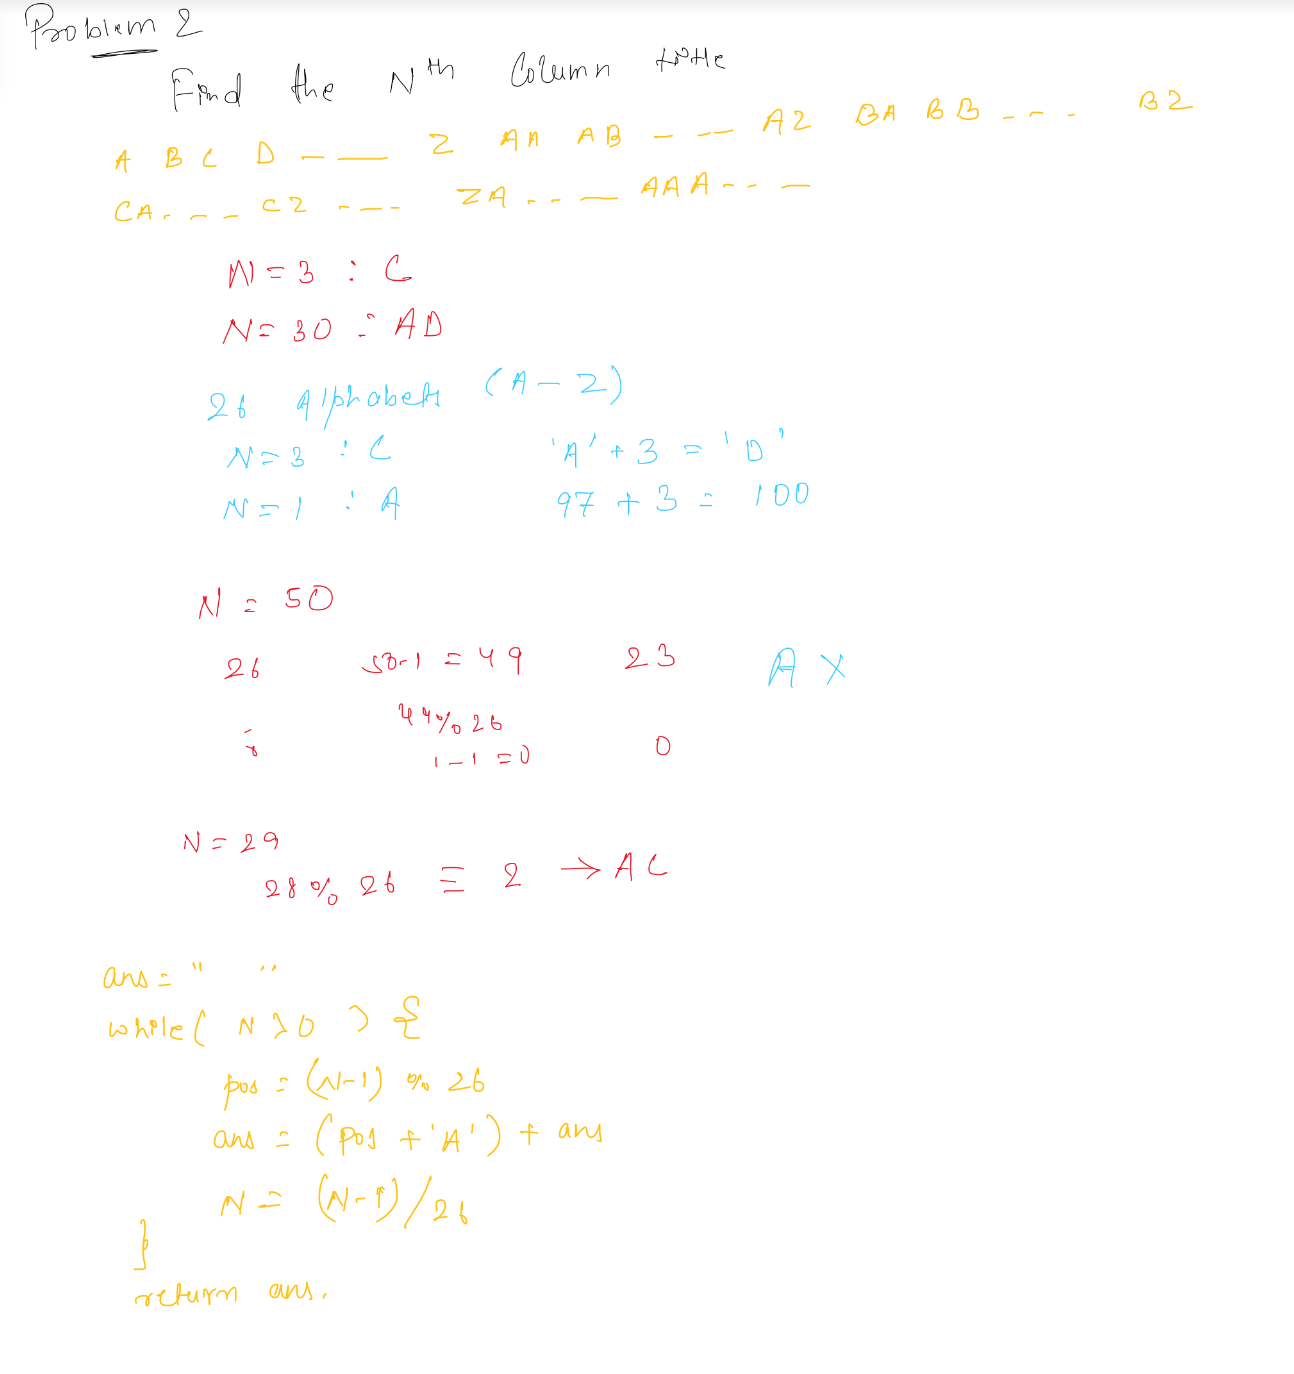 Problem 2
Find the Nth Column title
A B C D - — Z AA AB - -- AZ BA BB - - - BZ
CA. - - - CZ - -- ZA - - — AAA - - -
N = 3 : C
N = 30 : AD
26 Alphabets (A - Z)
N = 3 : C 'A' + 3 = 'D'
N = 1 : A 97 + 3 = 100
N = 50
26 50-1 = 49 23 A X
49%26
1-1 = 0 0
N = 29
28 % 26 ≡ 2 → AC
ans = " "
while( N > 0 ) {
pos = (N-1) % 26
ans = (pos + 'A') + ans
N = (N-1)/26
}
return ans.